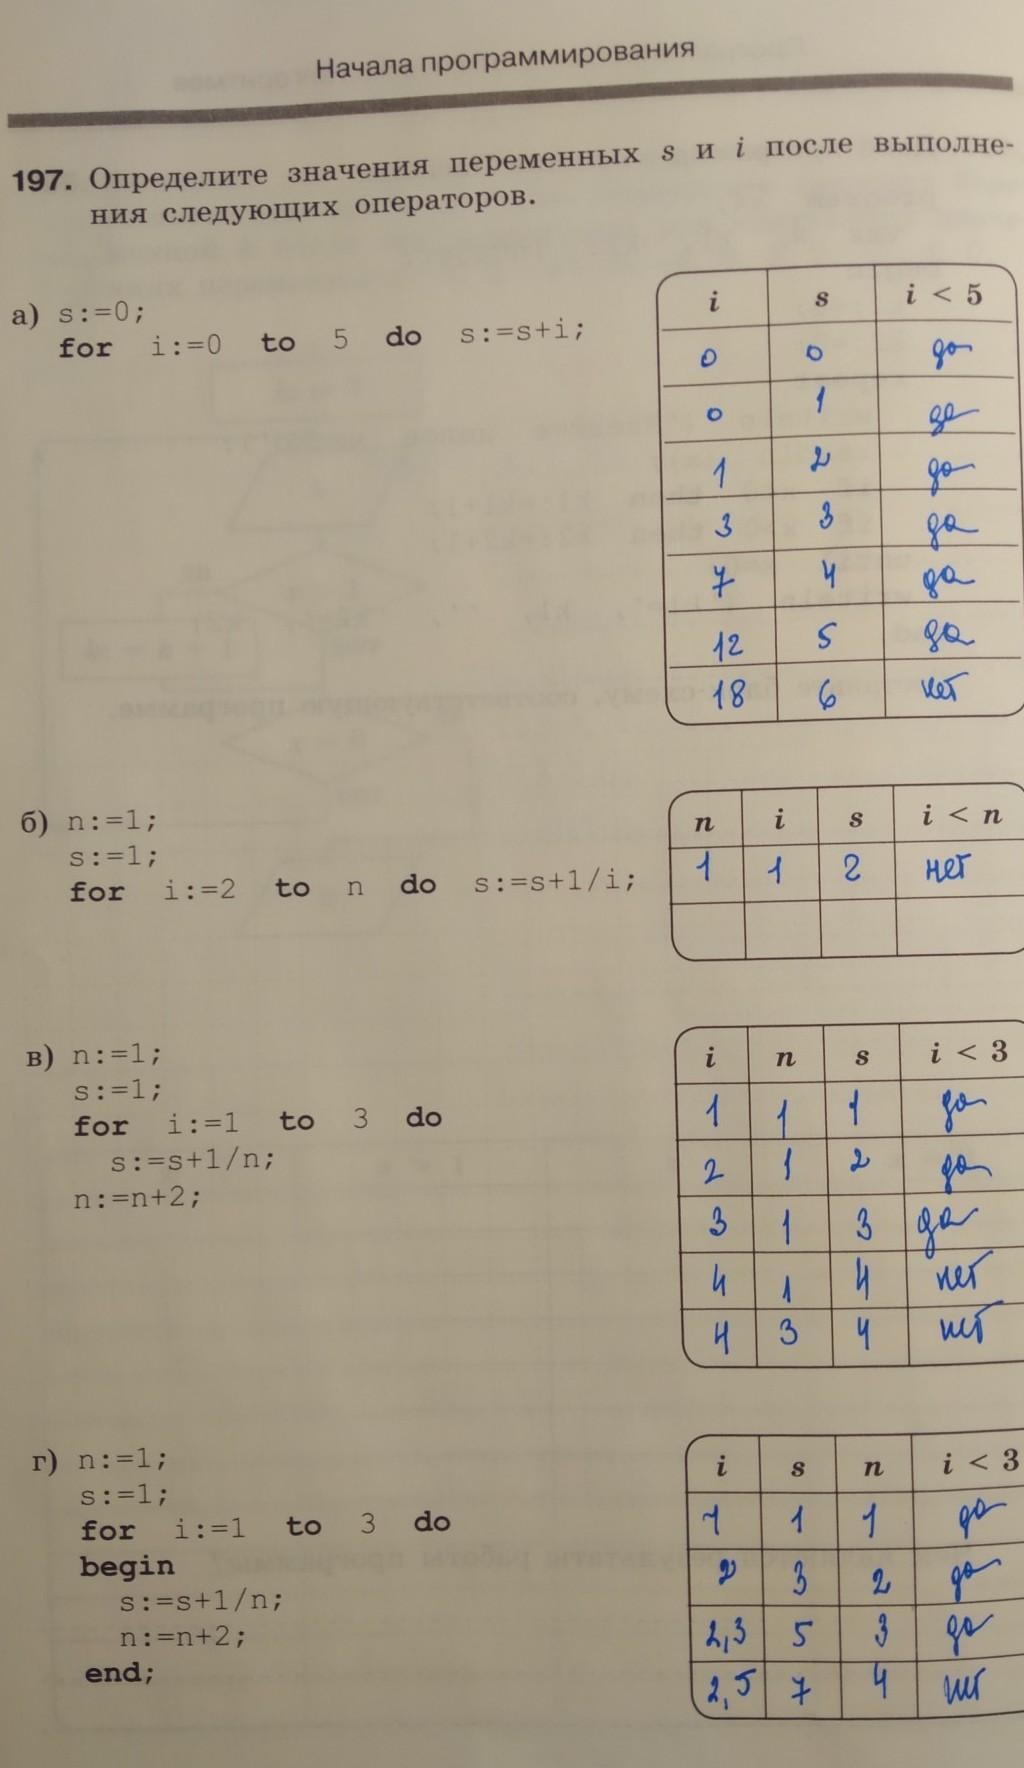 Начала программирования
197. Определите значения переменных s и i после выполне-
ния следующих операторов.
а) s:=0;
for i:=0 to 5 do s:=s+i;
i s i < 5
0 0 да
0 1 да
1 2 да
3 3 да
7 4 да
12 5 да
18 6 нет
б) n:=1;
s:=1;
for i:=2 to n do s:=s+1/i;
n i s i < n
1 1 2 нет
в) n:=1;
s:=1;
for i:=1 to 3 do
s:=s+1/n;
n:=n+2;
i n s i < 3
1 1 1 да
2 1 2 да
3 1 3 да
4 1 4 нет
4 3 4 нет
г) n:=1;
s:=1;
for i:=1 to 3 do
begin
s:=s+1/n;
n:=n+2;
end;
i s n i < 3
1 1 1 да
2 3 2 да
2,3 5 3 да
2,5 7 4 нет